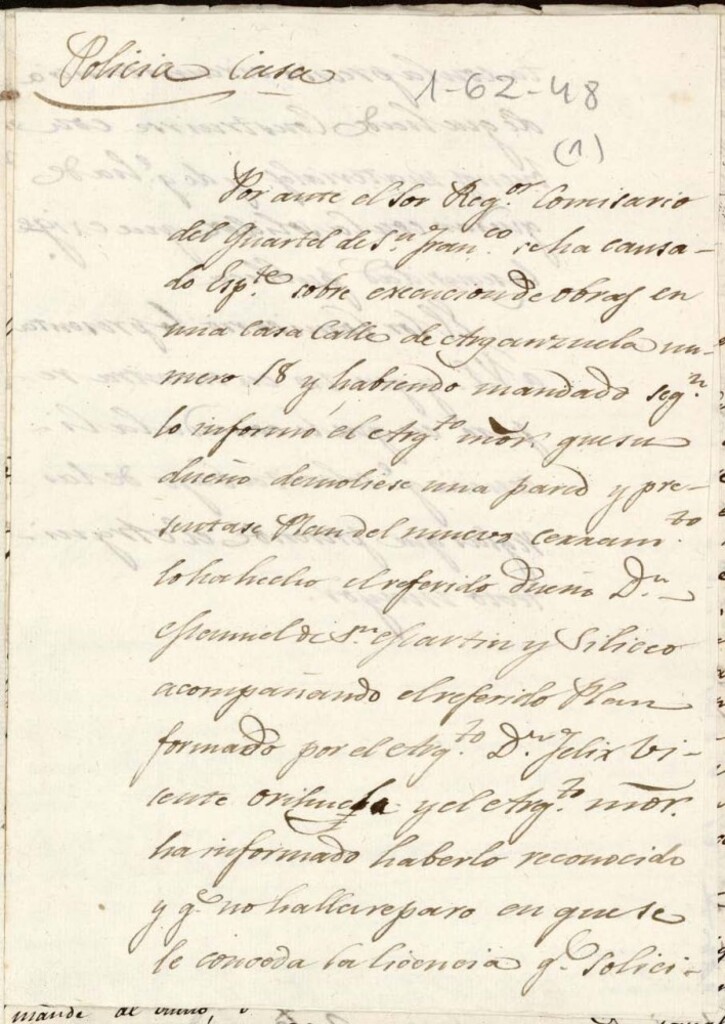 Policia Casa
1-62-48
(1)
Por ante el Sor Reg.or Comisario
del Quartel de S.n Fran.co se ha causa-
do Esp.te sobre execucion de obras en
una casa Calle de Arganzuela nu-
mero 18 y habiendo mandado seg.n
lo informó el Arq.to mõr. que su
dueño demoliese una pared y pre-
sentase Plan del nuevo cerram.to
lo ha hecho el referido Dueño D.n
Manuel de S.n Martin y Siliceo
acompañando el referido Plan
formado por el Arq.to D.n Felix Vi-
cente Orihuela y el Arq.to mõr.
ha informado haberlo reconocido
y q.e no halla reparo en que se
le conceda la licencia q.e solici-
mande al